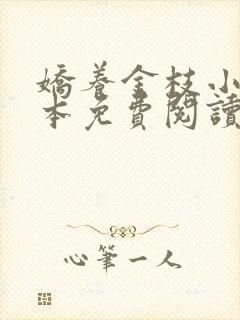 嬌養金枝小
本免費閱讀
心筆一人